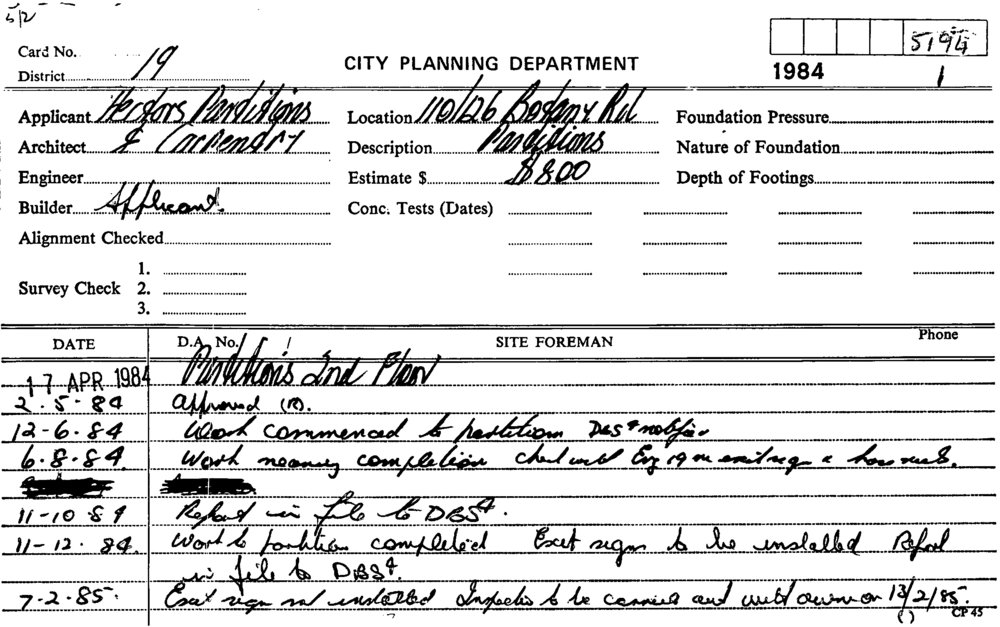 5/2
5194
Card No. 19
District
CITY PLANNING DEPARTMENT
1984 1
Applicant Partitions
Location 110/126 Botany Rd
Foundation Pressure
Architect & Carpentry
Description Partitions
Nature of Foundation
Engineer
Estimate $ $800
Depth of Footings
Builder Applicant.
Conc. Tests (Dates)
Alignment Checked
1.
Survey Check 2.
3.
DATE D.A. No. SITE FOREMAN Phone
17 APR 1984 Partitions 2nd Plan
2.5.84 Approved (R).
12-6.84 Work commenced to partitions DBS4 notified
6.8.84. Work nearing completion check with Eng 19 re exit sign & hose reels.
11-10 84 Report in file to DBS4.
11-12.84. Work to partition completed Exit sign to be installed Report
in file to DBS4.
7-2.85. Exit sign not installed Inspection to be carried out with owner on 13/2/85.
( ) CP 45